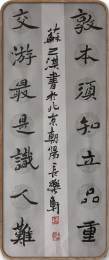 敦本須知立品重
交游最是識人難
蘇三淇書於北京朝陽長樂軒